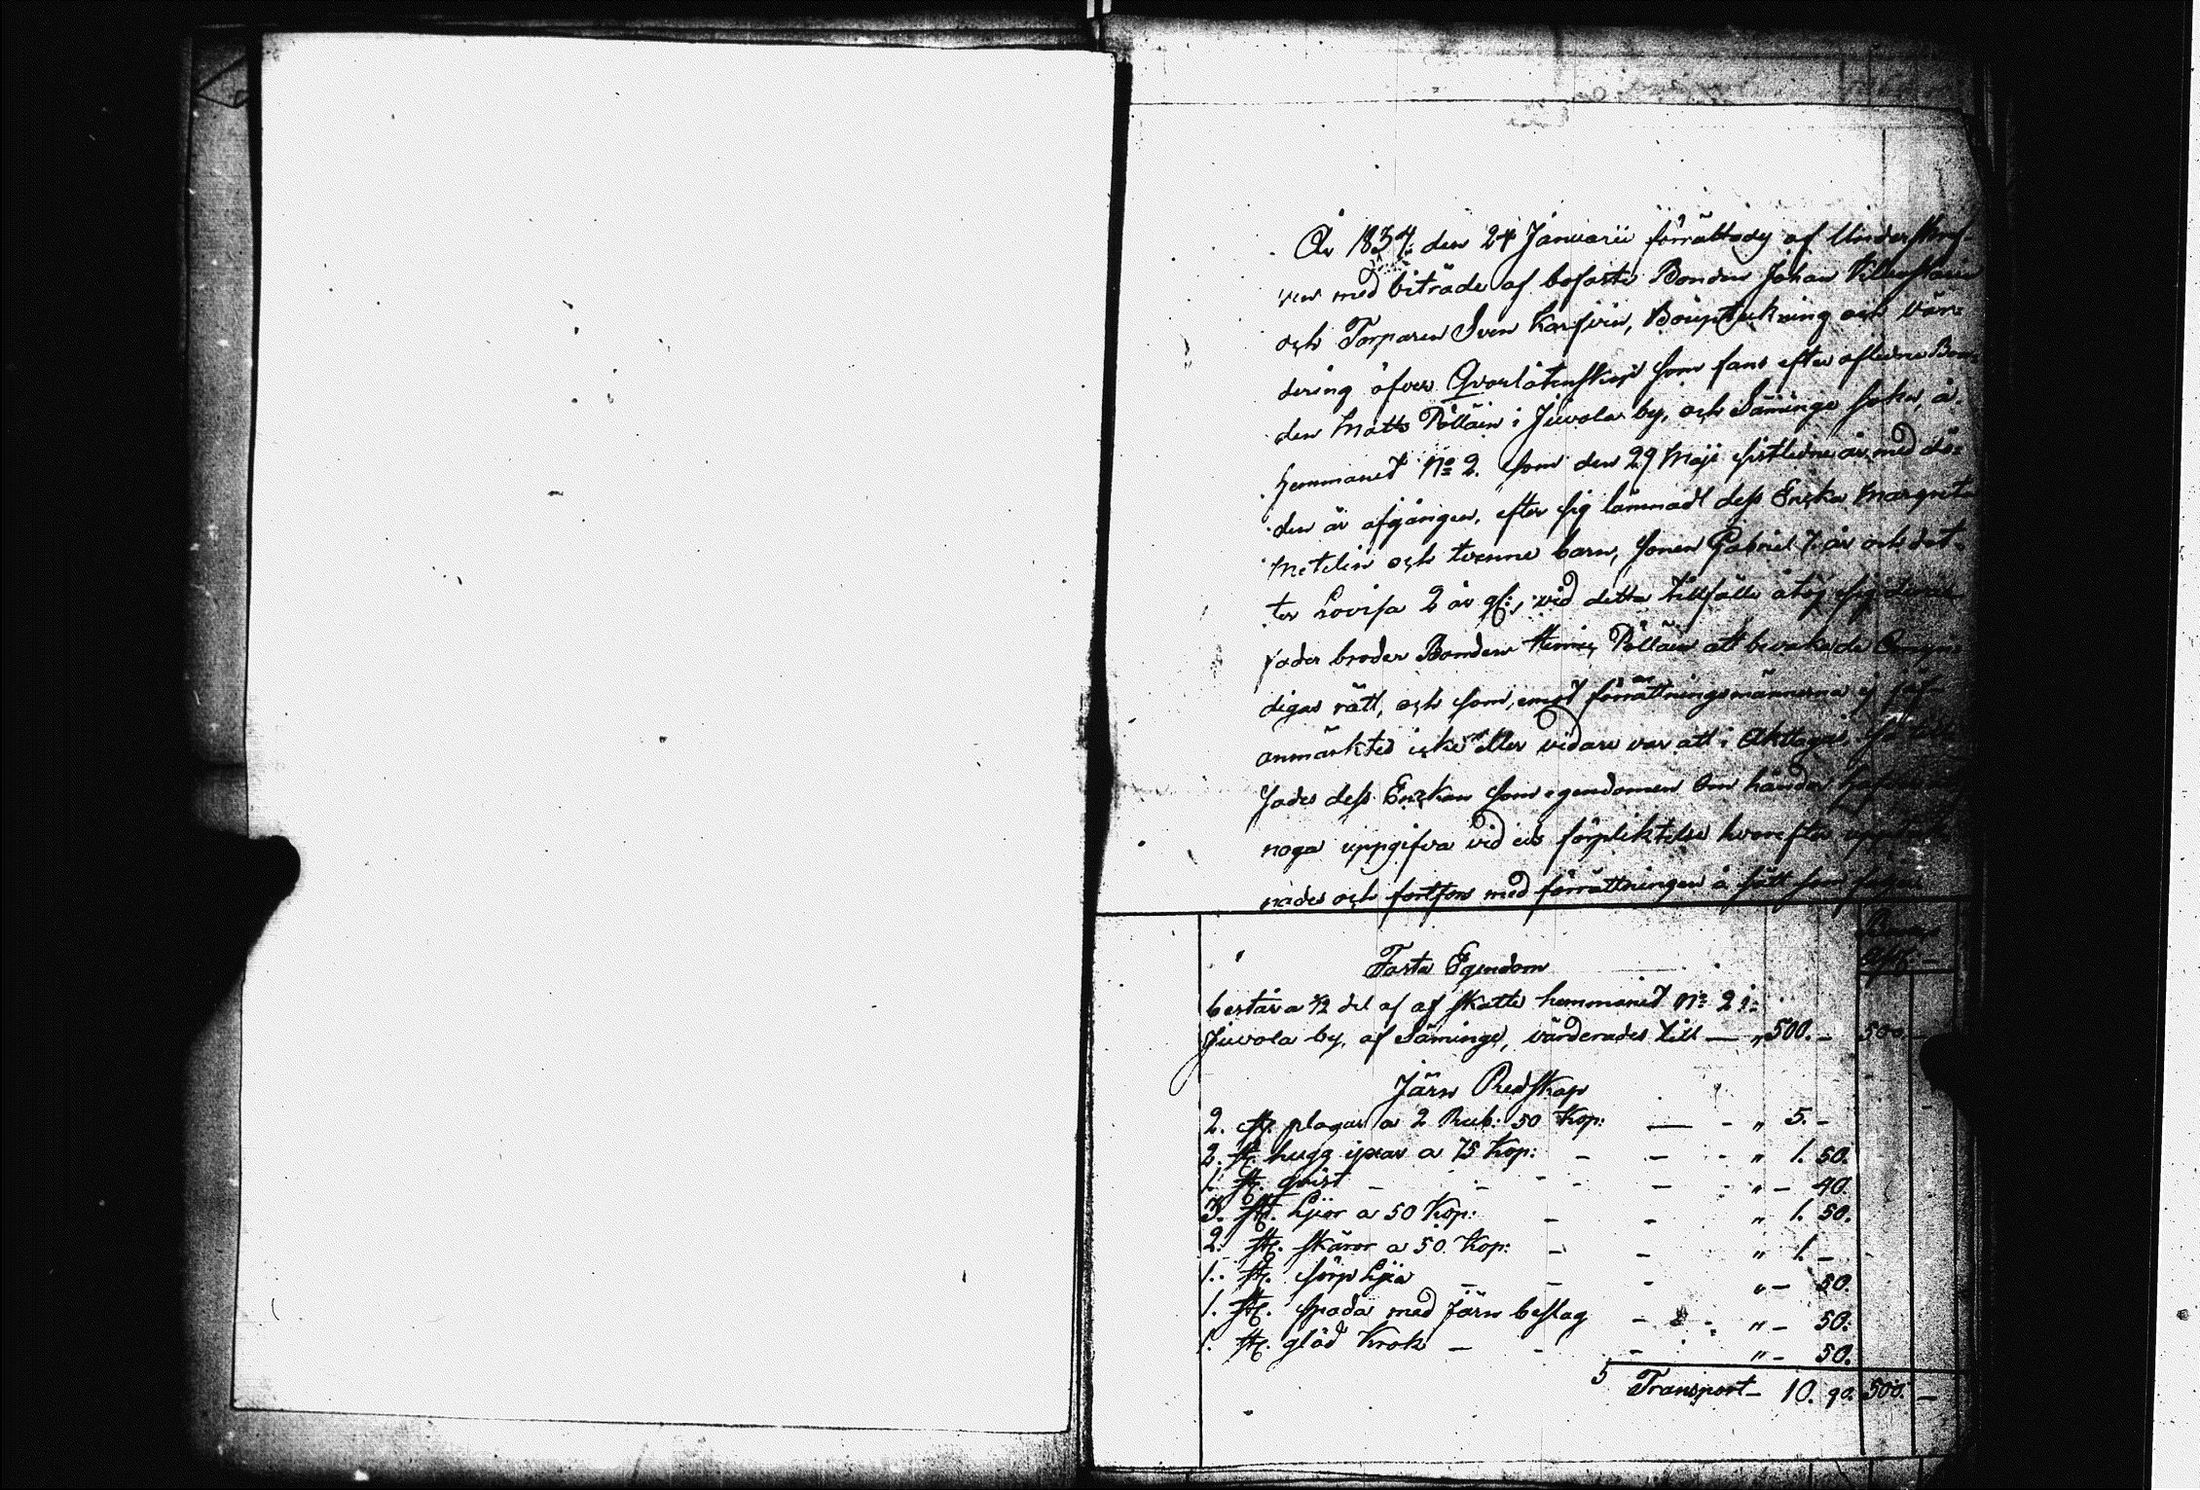 År 1834. den 24 Januarii förrättades af Underskref-
ven med biträde af bofaste Bonden Johan
och Torparen Sven Karjein, Bouptekning och vär-
dering öfver Qvarlåtenskap som fans efter aflidne Bon-
den Matts Pöllän i Juvola by, och Säminge sokn, å
hemmanet No 2. som den 29 Maji sistledne år med dö-
den är afgången, efter sig lämnadt dess Enka Margreta
Metelin och tvenne barn, sonen Gabriel 7. år och dot-
ter Lovisa 2 år gl:, vid detta tillfälle åtog sig deras
fader broder Bonden Henric Pöllän att bevaka de Omyn-
digas rätt, och som, emot förrättningsmännerna ej jäf
anmärktes icke eller vidare var att i Akttaga, så till-
sades dess Enkan som egendomen Om händer
noga uppgifva vid eds förpliktelse hvarefter uppteck-
nades och fortfors med förrättningen å sätt som följer
Fasta Egendom
består a 1/2 del af af skatte hemmanet No 2 i
Juvola by, af Säminge, värderades till — " 500. - 500. -
Järn Redskap
2. st. plogar a 2 Rub: 50 Kop: — - " 5. -
2. st. hugg yxar a 75 Kop: - - - " 1. 50.
1. st. qvist - - - - " - 40.
3. st. Lijor a 50 Kop: - - " 1. 50.
2. st. skäror a 50. Kop: - - " 1. -
1. st. sörp Lija - - - " - 50.
1. st. spada med Järn beslag - - " - 50.
1. st. glöd Krok - - - " - 50.
Transport - 10. 90. 500. -